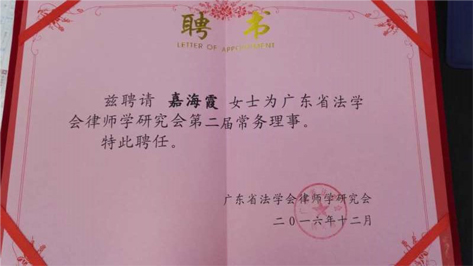 聘书
LETTER OF APPOINTMENT
兹聘请 嘉海霞 女士为广东省法学
会律师学研究会第二届常务理事。
特此聘任。
广东省法学会律师学研究会
二〇一六年十二月